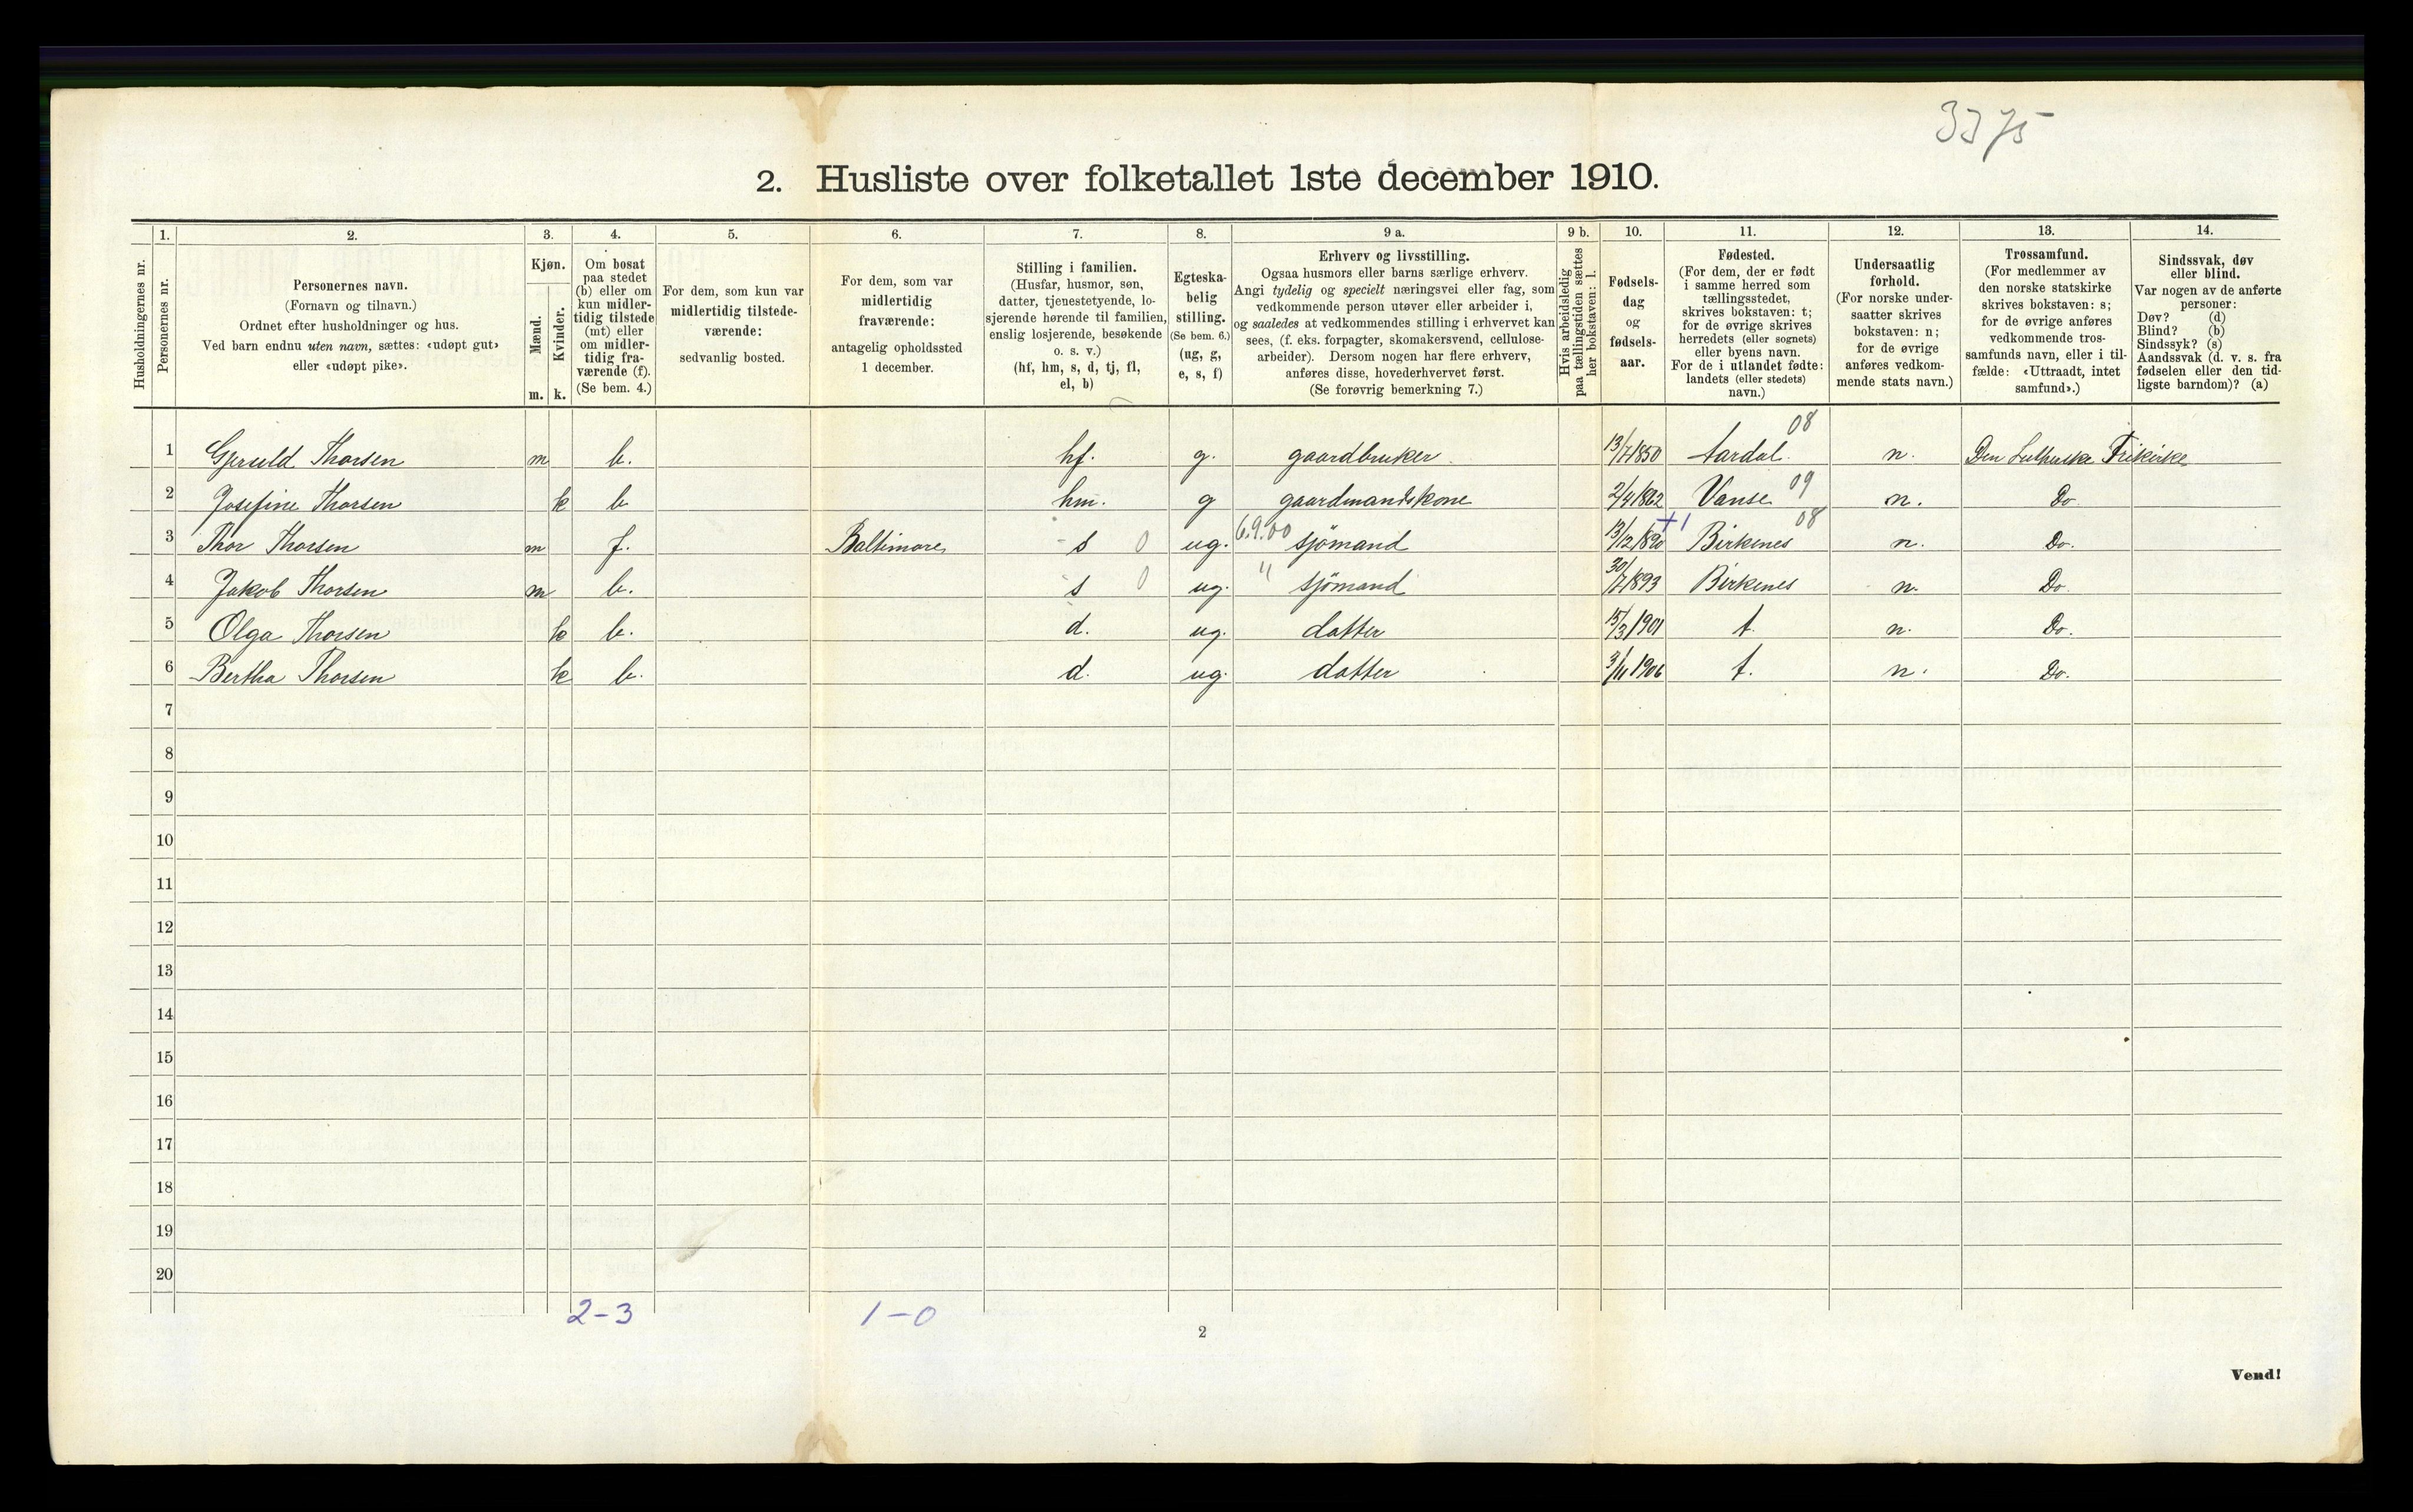 3375
2. Husliste over folketallet 1ste december 1910.
Husholdningernes nr.
1. Personernes nr.
2. Personernes navn. (Fornavn og tilnavn.) Ordnet efter husholdninger og hus. Ved barn endnu uten navn, sættes: «udøpt gut» eller «udøpt pike».
3. Kjøn. Mænd. m. Kvinder. k.
4. Om bosat paa stedet (b) eller om kun midler-tidig tilstede (mt) eller om midler-tidig fra-værende (f). (Se bem. 4.)
5. For dem, som kun var midlertidig tilstede-værende: sedvanlig bosted.
6. For dem, som var midlertidig fraværende: antagelig opholdssted 1 december.
7. Stilling i familien. (Husfar, husmor, søn, datter, tjenestetyende, lo-sjerende hørende til familien, enslig losjerende, besøkende o. s. v.) (hf, hm, s, d, tj, fl, el, b)
8. Egteska-belig stilling. (Se bem. 6.) (ug, g, e, s, f)
9 a. Erhverv og livsstilling. Ogsaa husmors eller barns særlige erhverv. Angi tydelig og specielt næringsvei eller fag, som vedkommende person utøver eller arbeider i, og saaledes at vedkommendes stilling i erhvervet kan sees, (f. eks. forpagter, skomakersvend, cellulose-arbeider). Dersom nogen har flere erhverv, anføres disse, hovederhvervet først. (Se forøvrig bemerkning 7.)
9 b. Hvis arbeidsledig paa tællingstiden sættes her bokstaven: l.
10. Fødsels-dag og fødsels-aar.
11. Fødested. (For dem, der er født i samme herred som tællingsstedet, skrives bokstaven: t; for de øvrige skrives herredets (eller sognets) eller byens navn. For de i utlandet fødte: landets (eller stedets) navn.)
12. Undersaatlig forhold. (For norske under-saatter skrives bokstaven: n; for de øvrige anføres vedkom-mende stats navn.)
13. Trossamfund. (For medlemmer av den norske statskirke skrives bokstaven: s; for de øvrige anføres vedkommende tros-samfunds navn, eller i til-fælde: «Uttraadt, intet samfund».)
14. Sindssvak, døv eller blind. Var nogen av de anførte personer: Døv? (d) Blind? (b) Sindssyk? (s) Aandssvak (d. v. s. fra fødselen eller den tid-ligste barndom)? (a)
1 Gjeruld Thorsen m b. hf. g. gaardbruker 13/7 1850 Aardal 08 n. Den Lutherske Frikirke
2 Josefine Thorsen k b hm. g gaardmandskone 2/4 1862 Vanse 09 n. Do
3 Thor Thorsen m f. Baltimore s 0 ug. 6.9.00 sjömand 13/12 1890 +1 Birkenes 08 n. Do.
4 Jakob Thorsen m b. s 0 ug. " sjömand 30/7 1893 Birkenes n. Do
5 Olga Thorsen k b. d. ug. datter 15/3 1901 t. n. Do.
6 Bertha Thorsen k b. d. ug. datter 3/11 1906 t. n. Do.
7
8
9
10
11
12
13
14
15
16
17
18
19
20
2-3 1-0
2
Vend!